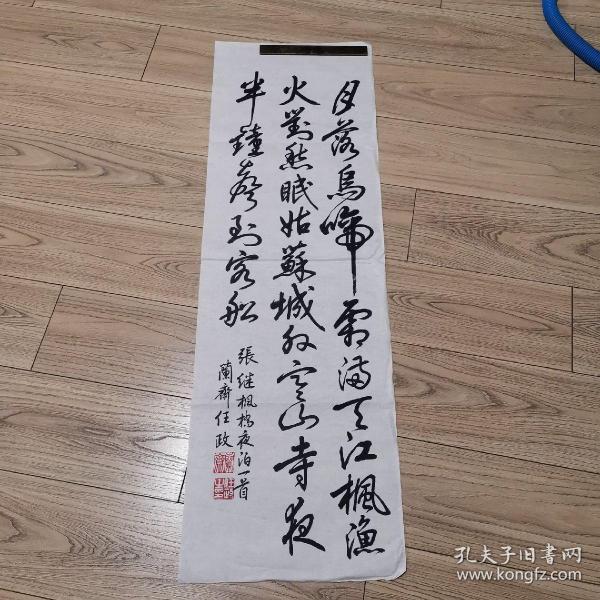 月落烏啼霜满天江楓漁
火對愁眠姑蘇城外寒山寺夜
半鐘聲到客船
張继楓橋夜泊一首
蘭齋任政
孔夫子旧书网
www.kongfz.com